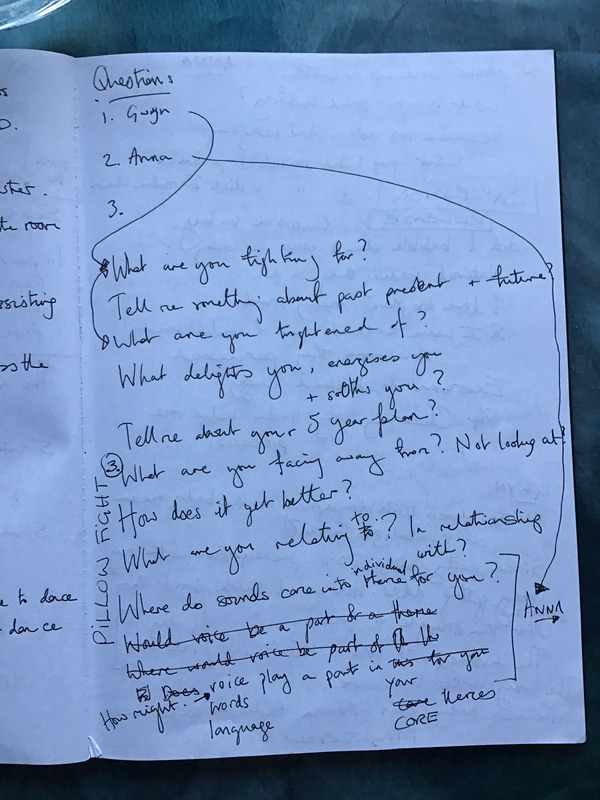 ster.
te room
sisting
ss the
e to dance
dance
Questions
1. Gwyn
2. Anna
3.
What are you fighting for?
Tell me something about past present + future?
What are you frightened of?
What delights you, energises you
+ soothes you?
Tell me about your 5 year plan?
③ What are you facing away from? Not looking at?
How does it get better?
What are you relating to? In relationship
with?
Where do sounds come into individual theme for you?
Would voice be a part of a theme
Where would voice be part of
Does voice play a part in this for you
How might words your
language core themes
CORE
PILLOW FIGHT
ANNA